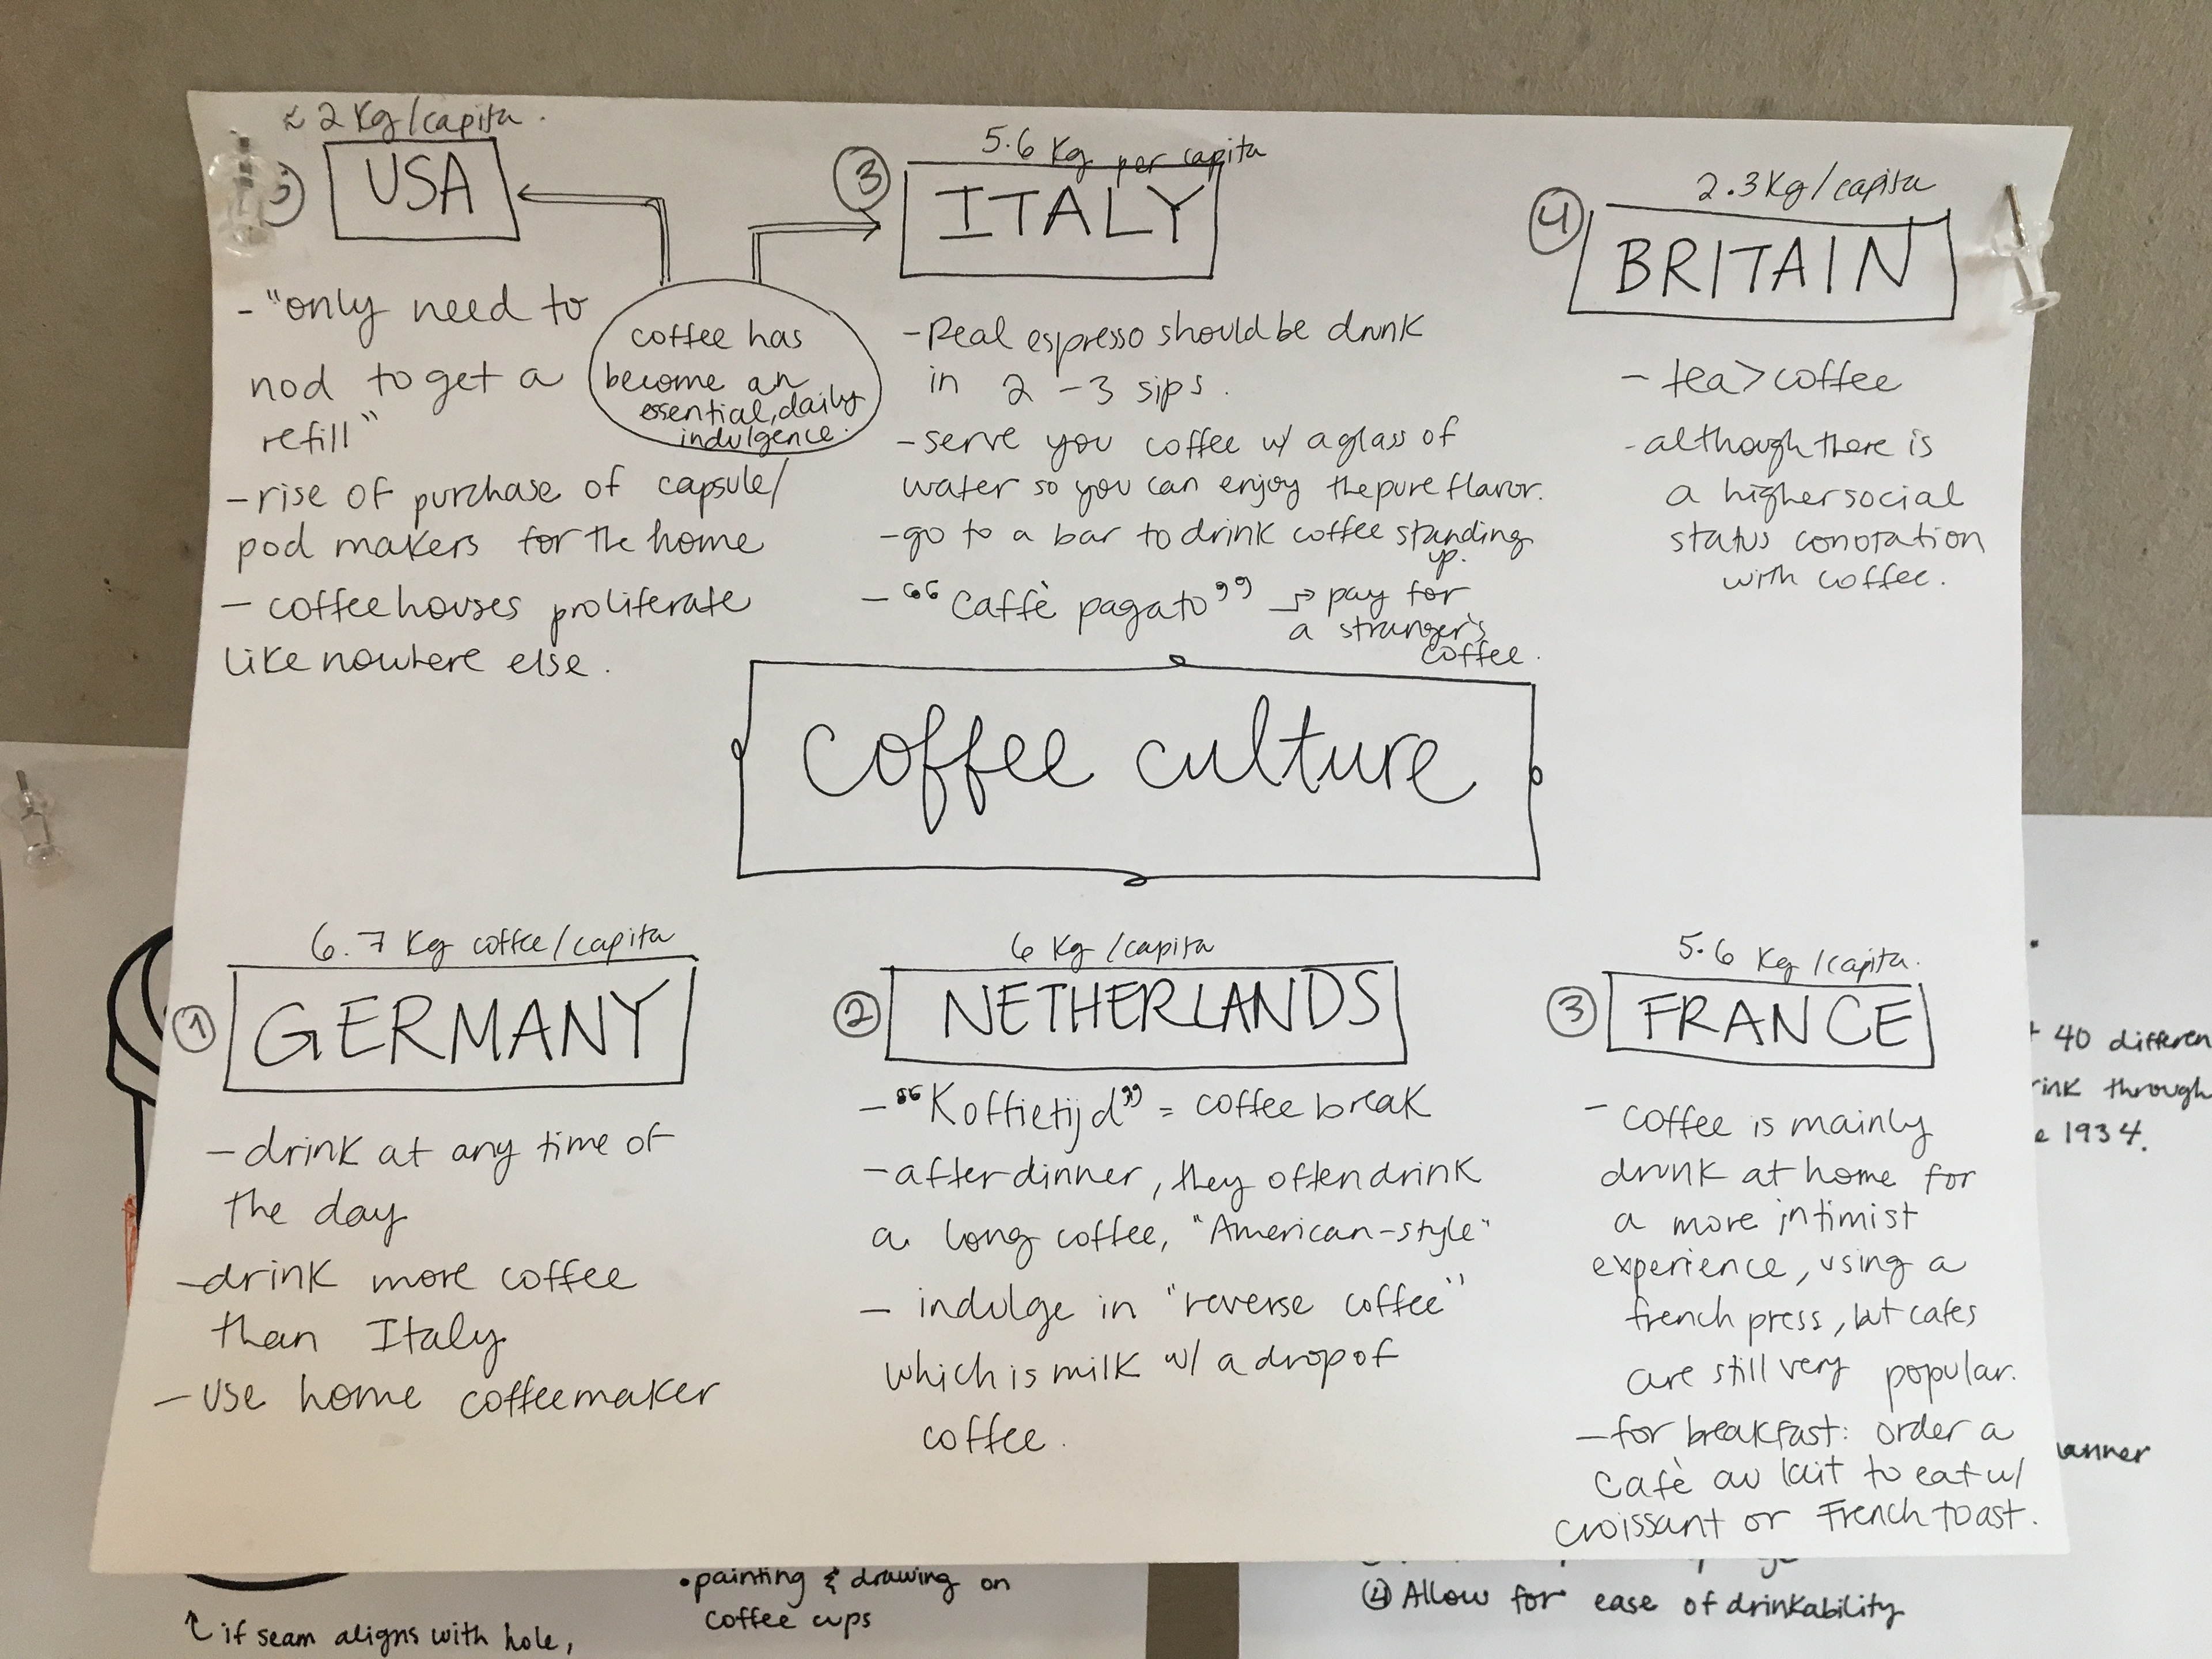 ≈ 2 Kg/capita.
5) USA
- "only need to
nod to get a
refill"
- rise of purchase of capsule/
pod makers for the home
- coffeehouses proliferate
like nowhere else.
coffee has
become an
essential, daily
indulgence.
5.6 Kg per capita
3 ITALY
- Real espresso should be drunk
in 2-3 sips.
- serve you coffee w/ a glass of
water so you can enjoy the pure flavor.
- go to a bar to drink coffee standing
up.
- "Caffè pagato" → pay for
a stranger's
coffee.
2.3 Kg/capita
4 BRITAIN
- tea > coffee
- although there is
a higher social
status conotation
with coffee.
coffee culture
6.7 Kg coffee/capita
1 GERMANY
- drink at any time of
the day
- drink more coffee
than Italy
- use home coffeemaker
6 Kg/capita
2 NETHERLANDS
- "Koffietijd" = coffee break
- after dinner, they often drink
a long coffee, "American-style"
- indulge in "reverse coffee"
which is milk w/ a drop of
coffee.
5.6 Kg/capita.
3 FRANCE
- coffee is mainly
drunk at home for
a more intimist
experience, using a
french press, but cafes
are still very popular.
- for breakfast: order a
Cafè au lait to eat w/
croissant or French toast.
40 differen
rink through
e 1934.
anner
↑ if seam aligns with hole,
• painting & drawing on
coffee cups
④ Allow for ease of drinkability